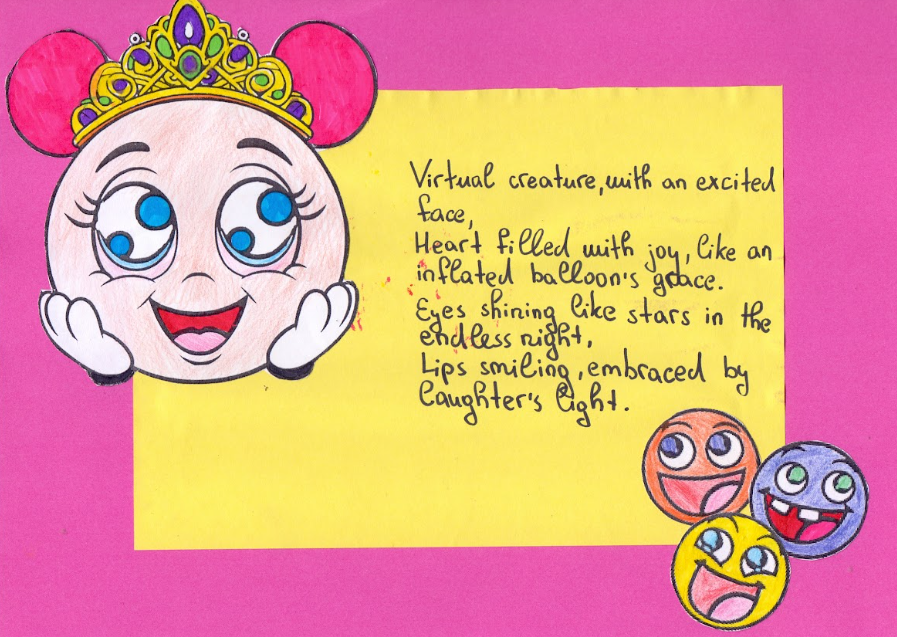 Virtual creature, with an excited
face,
Heart filled with joy, like an
inflated balloon's grace.
Eyes shining like stars in the
endless night,
Lips smiling, embraced by
laughter's light.